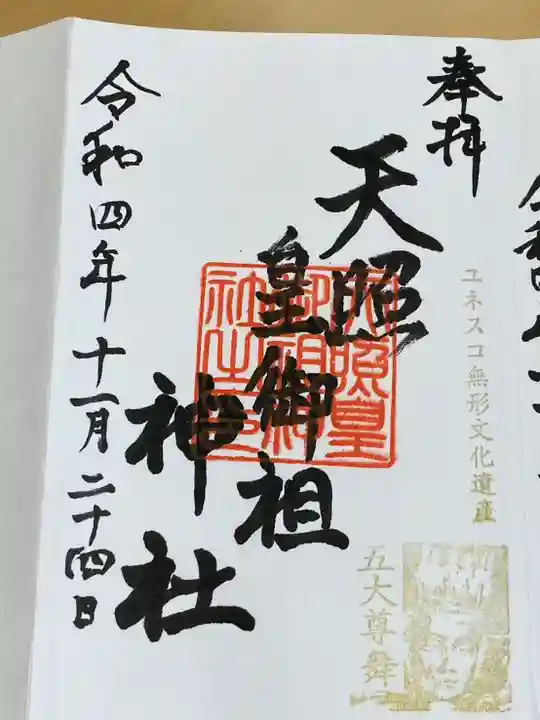 奉拝
天照
皇御祖
神社
令和四年十一月二十四日
天照皇
御祖神
社之印
ユネスコ無形文化遺産
五大尊舞
令和四年十一